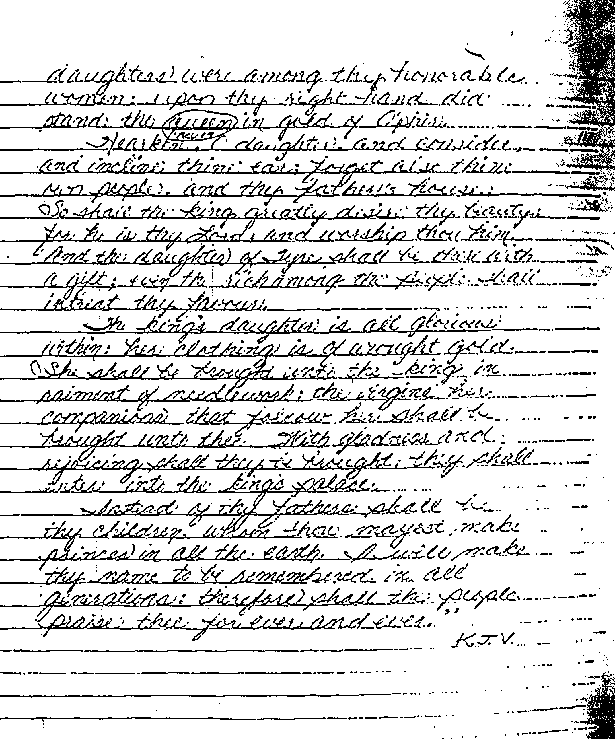 daughters were among thy honorable
women: upon thy right hand did
stand the queen in gold of Ophir.
Hearken, O daughter, and consider,
and incline thine ear; forget also thine
own people, and thy father's house;
So shall the king greatly desire thy beauty:
for he is thy Lord; and worship thou him.
And the daughter of Tyre shall be there with
a gift; even the rich among the people shall
intreat thy favour.
The king's daughter is all glorious
within: her clothing is of wrought gold.
She shall be brought unto the king in
raiment of needlework: the virgins her
companions that follow her shall be
brought unto thee. With gladness and
rejoicing shall they be brought: they shall
enter into the king's palace.
Instead of thy fathers shall be
thy children, whom thou mayest make
princes in all the earth. I will make
thy name to be remembered in all
generations: therefore shall the people
praise thee for ever and ever."
K.J.V.